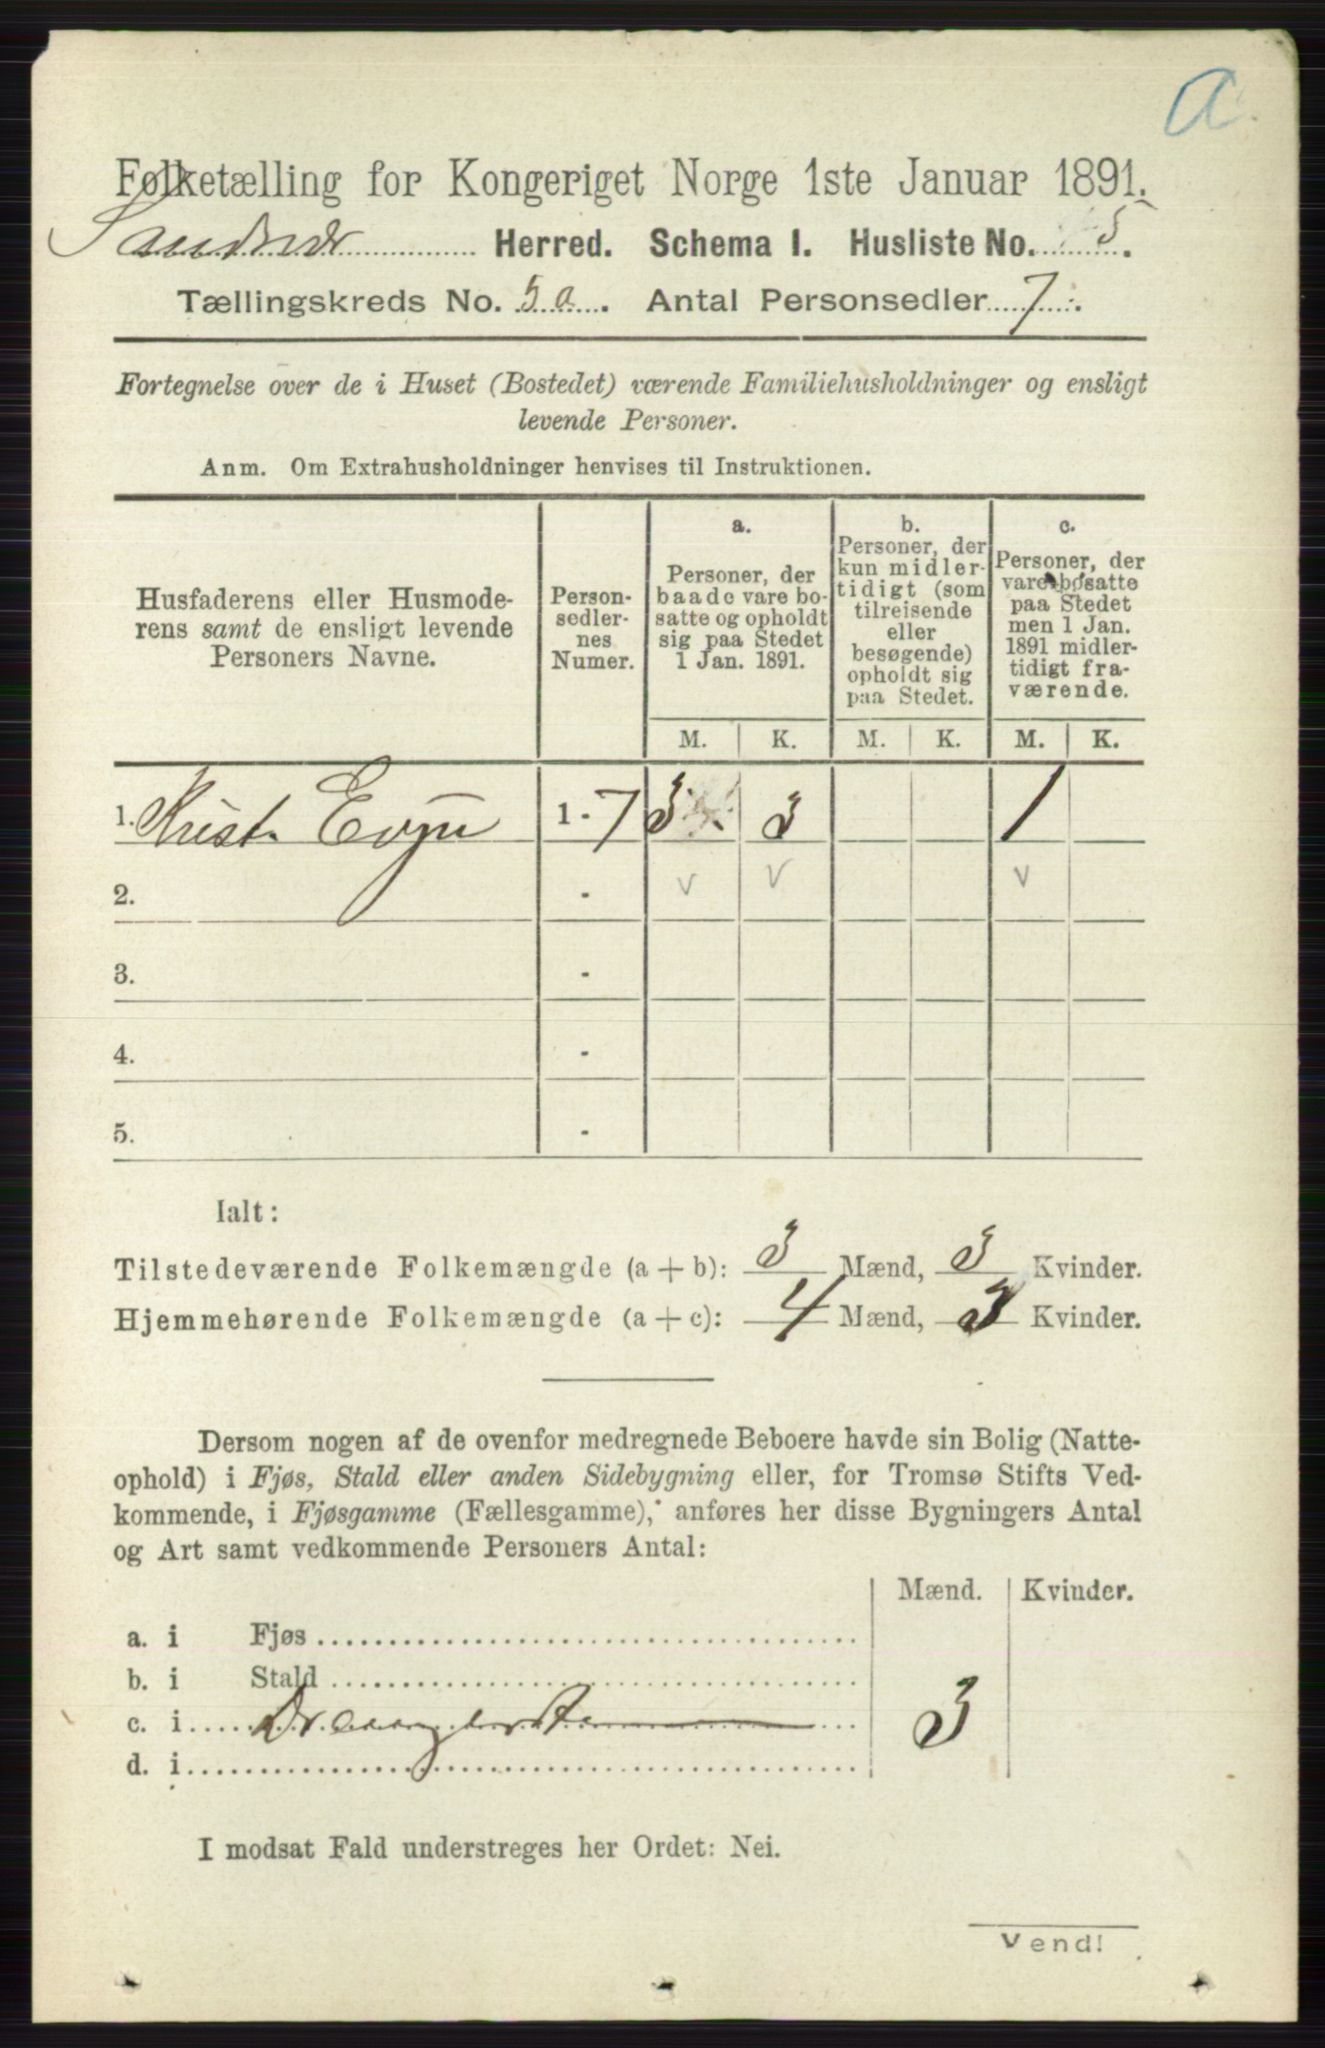 a
Folketælling for Kongeriget Norge 1ste Januar 1891.
Herred. Schema I. Husliste No. 5.
Tællingskreds No. 5a. Antal Personsedler 7.
Fortegnelse over de i Huset (Bostedet) værende Familiehusholdninger og ensligt
levende Personer.
Anm. Om Extrahusholdninger henvises til Instruktionen.
Husfaderens eller Husmode-
rens samt de ensligt levende
Personers Navne.
Person-
sedler-
nes
Numer.
a.
Personer, der
baade vare bo-
satte og opholdt
sig paa Stedet
1 Jan. 1891.
b.
Personer, der
kun midler-
tidigt (som
tilreisende
eller
besøgende)
opholdt sig
paa Stedet.
c.
Personer, der
vare bosatte
paa Stedet
men 1 Jan.
1891 midler-
tidigt fra-
værende.
M. K. M. K. M. K.
1. Krist. Evju 1-7 3 3 1
2. - v v v
3. -
4. -
5. -
Ialt:
Tilstedeværende Folkemængde (a + b): 3 Mænd, 3 Kvinder.
Hjemmehørende Folkemængde (a + c): 4 Mænd, 3 Kvinder.
Dersom nogen af de ovenfor medregnede Beboere havde sin Bolig (Natte-
ophold) i Fjøs, Stald eller anden Sidebygning eller, for Tromsø Stifts Ved-
kommende, i Fjøsgamme (Fællesgamme), anføres her disse Bygningers Antal
og Art samt vedkommende Personers Antal:
Mænd. Kvinder.
a. i Fjøs
b. i Stald
c. i Drengestuen 3
d. i
I modsat Fald understreges her Ordet: Nei.
Vend!